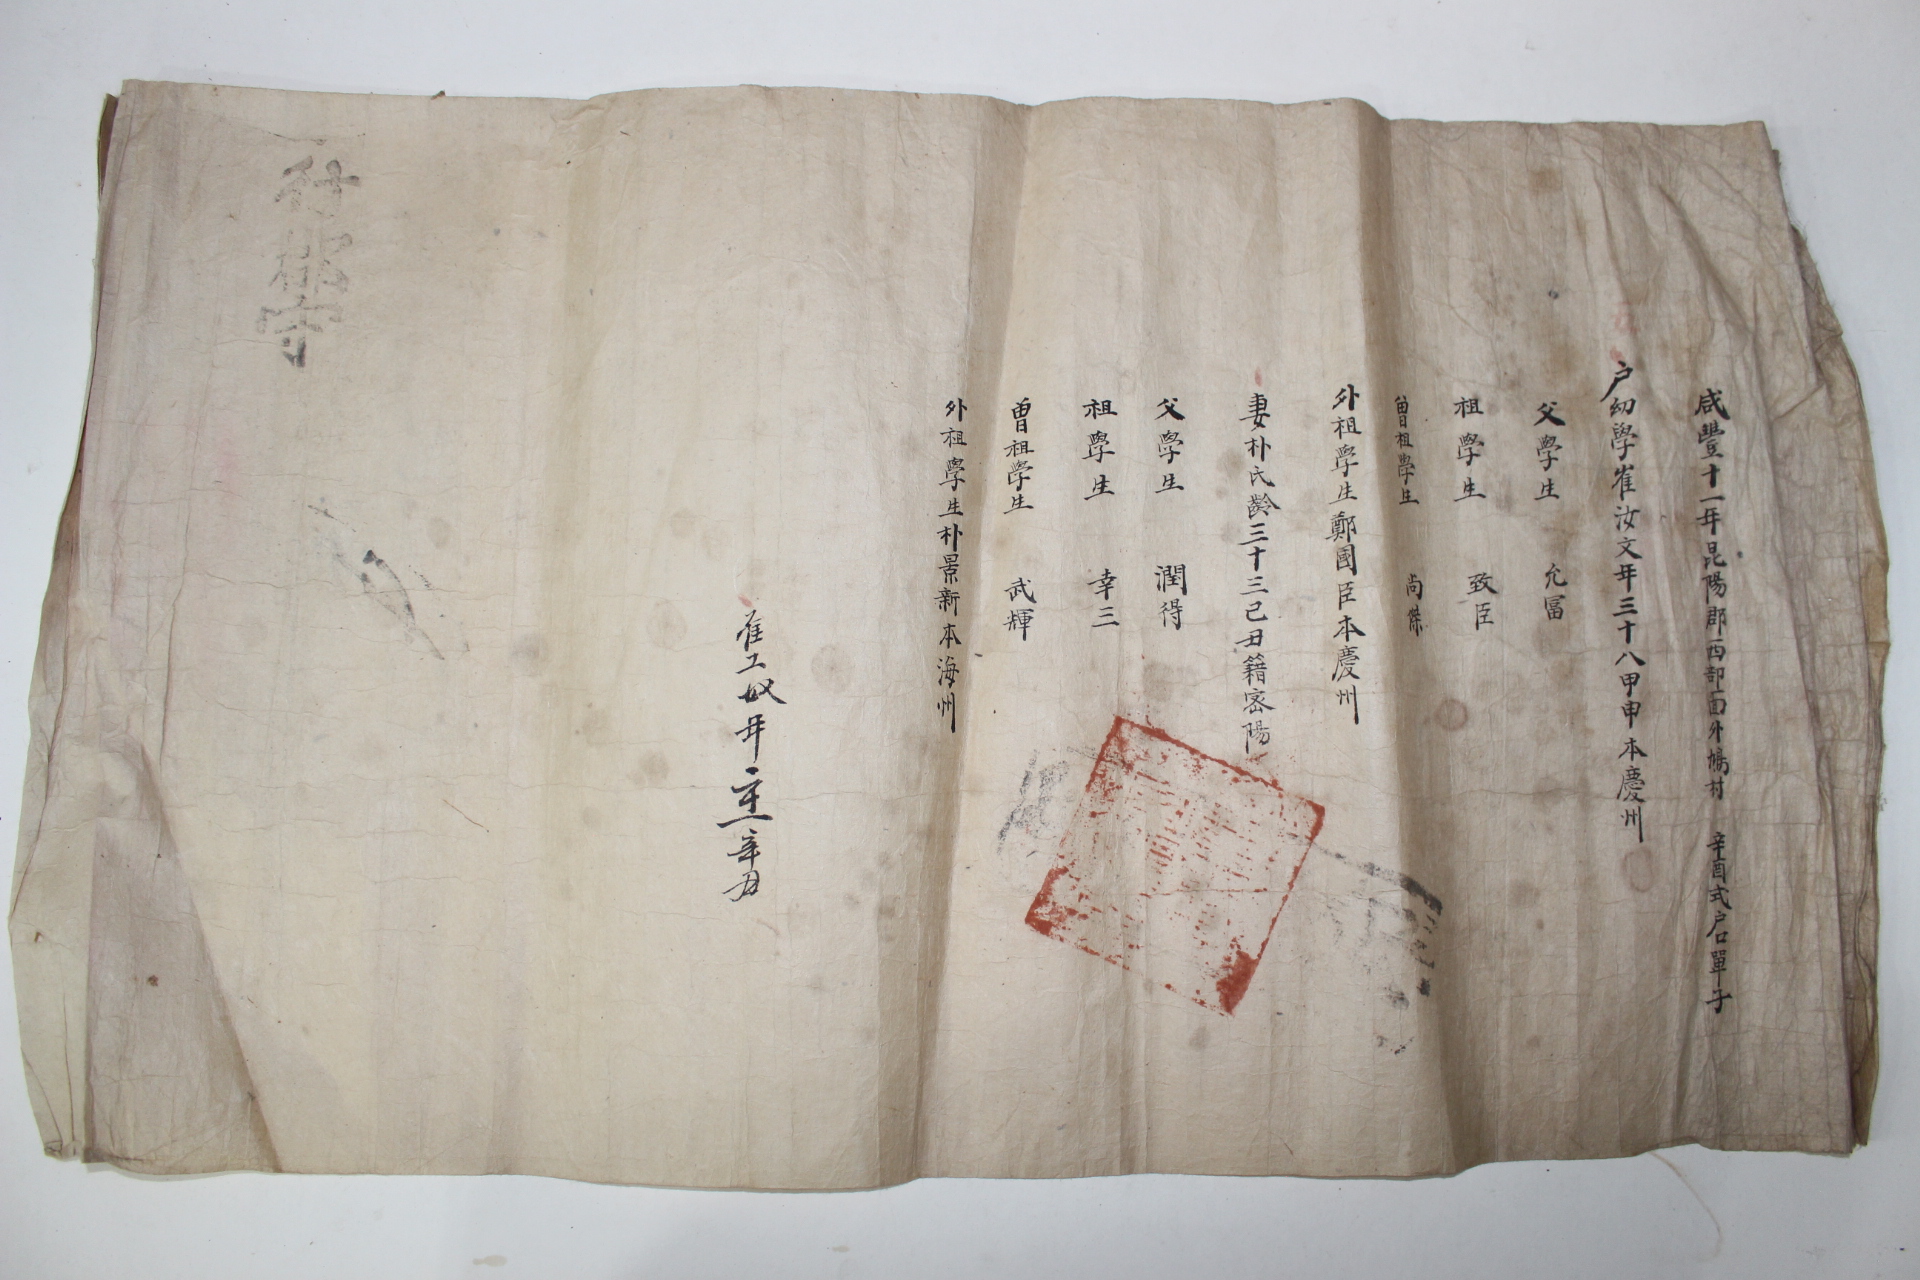 咸豐十一年昆陽郡西部面外鳩村　辛酉式户口單子
户幼學崔汝文年三十八甲申本慶州
父學生　允冨
祖學生　致臣
曾祖學生　尚傑
外祖學生鄭國臣本慶州
妻朴氏齡三十三己丑籍密陽
父學生　潤得
祖學生　幸三
曾祖學生　武輝
外祖學生朴景新本海州
奴年 辛丑
行郡守